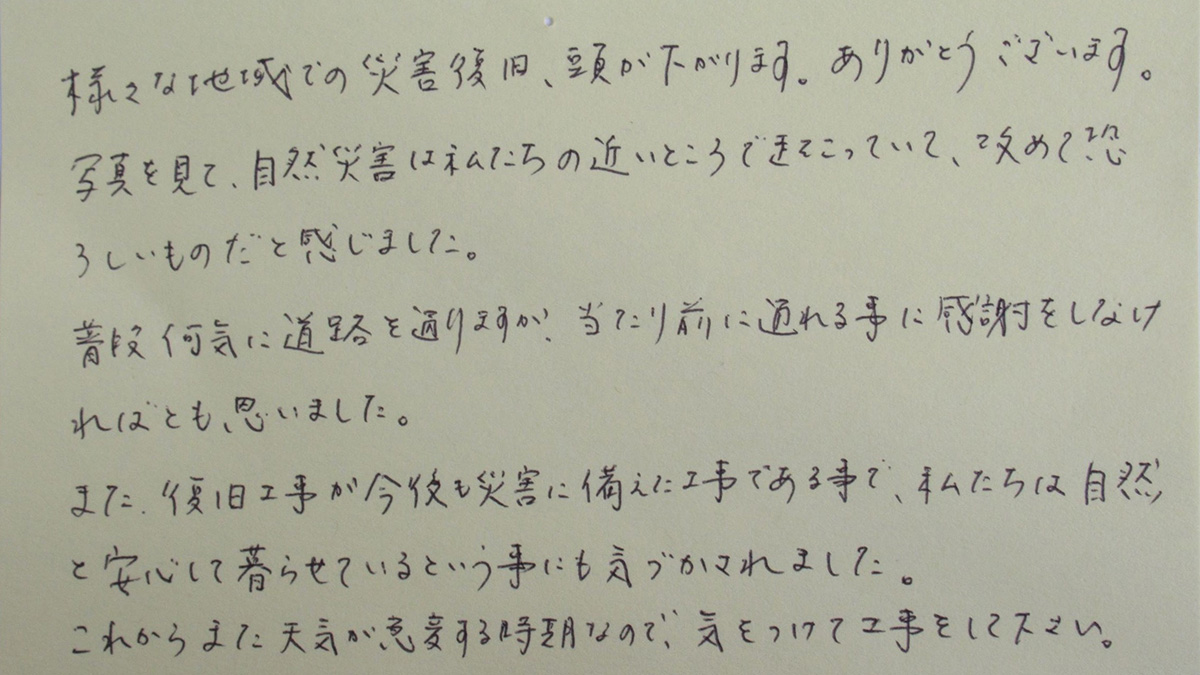 様々な地域での災害復旧、頭が下がります。ありがとうございます。
写真を見て、自然災害は私たちの近いところで起こっていて、改めて恐
ろしいものだと感じました。
普段何気に道路を通りますが、当たり前に通れる事に感謝をしなけ
ればとも、思いました。
また、復旧工事が今後も災害に備えた工事である事で、私たちは自然
と安心して暮らせているという事にも気づかされました。
これからまた天気が急変する時期なので、気をつけて工事をして下さい。